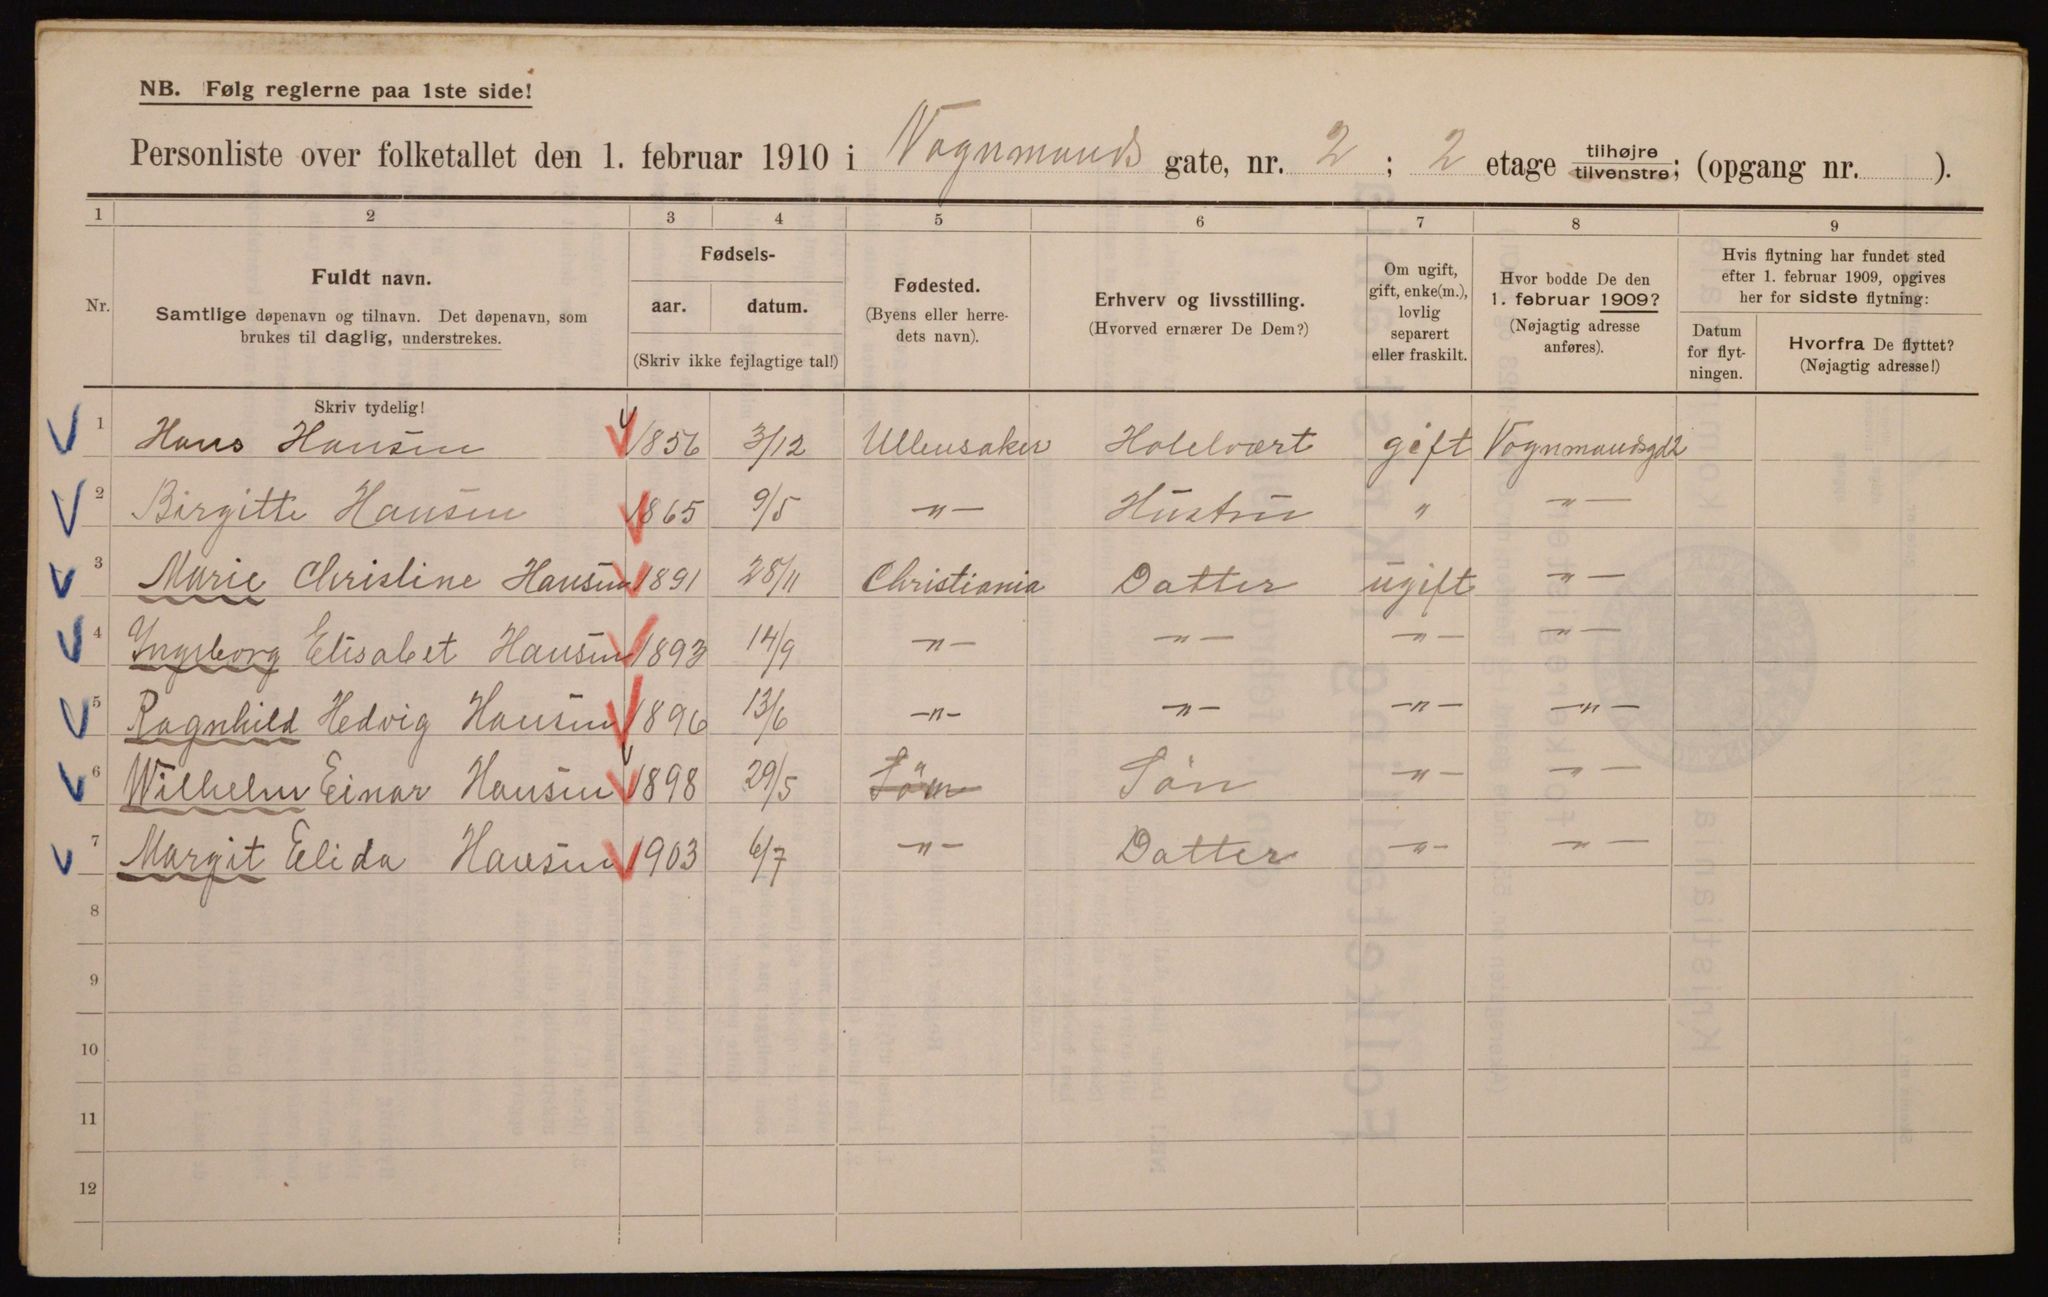 NB. Følg reglerne paa 1ste side!
Personliste over folketallet den 1. februar 1910 i Vognmands gate, nr. 2 ; 2 etage tilhøjre tilvenstre; (opgang nr. ).
1 2 3 4 5 6 7 8 9
Nr.
Fuldt navn.
Samtlige døpenavn og tilnavn. Det døpenavn, som
brukes til daglig, understrekes.
Fødsels-
aar. datum.
(Skriv ikke fejlagtige tal!)
Fødested.
(Byens eller herre-
dets navn).
Erhverv og livsstilling.
(Hvorved ernærer De Dem?)
Om ugift,
gift, enke(m.),
lovlig
separert
eller fraskilt.
Hvor bodde De den
1. februar 1909?
(Nøjagtig adresse
anføres).
Hvis flytning har fundet sted
efter 1. februar 1909, opgives
her for sidste flytning:
Datum
for flyt-
ningen.
Hvorfra De flyttet?
(Nøjagtig adresse!)
Skriv tydelig!
1 Hans Hansen 1856 3/12 Ullensaker Hotelvært gift Vognmandsgd 2
2 Birgitte Hansen 1865 9/5 -"- Hustru " -"-
3 Marie Christine Hansen 1891 28/11 Christiania Datter ugift -"-
4 Ingeborg Elisabet Hansen 1893 14/9 -"- -"- -"- -"-
5 Ragnhild Hedvig Hansen 1896 13/6 -"- -"- -"- -"-
6 Wilhelm Einar Hansen 1898 29/5 Søn Søn -"- -"-
7 Margit Elida Hansen 1903 6/7 -"- Datter -"- -"-
8
9
10
11
12